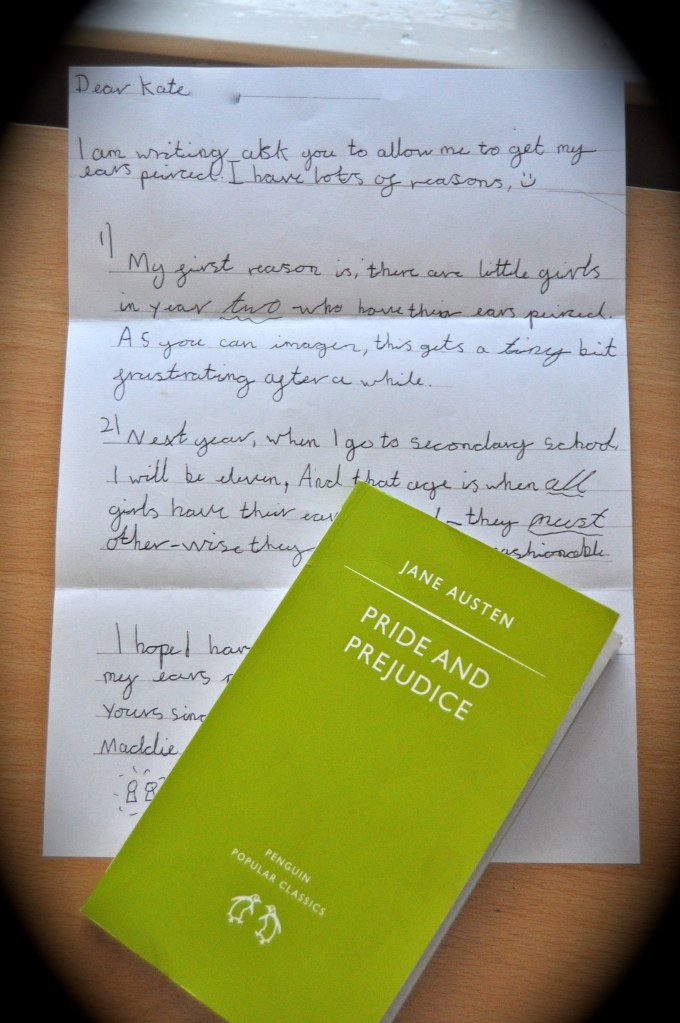 Dear Kate
I am writing ask you to allow me to get my
ears peirced. I have lots of reasons, :)
1) My first reason is, there are little girls
in year two who have their ears peirced.
As you can imagen, this gets a tiny bit
frustrating after a while.
2) Next year, when I go to secondary school
I will be eleven, And that age is when all
girls have their ears they must
other-wise they fashionable
I hope I have
my ears
Yours sinc
Maddie
JANE AUSTEN
PRIDE AND
PREJUDICE
PENGUIN
POPULAR CLASSICS